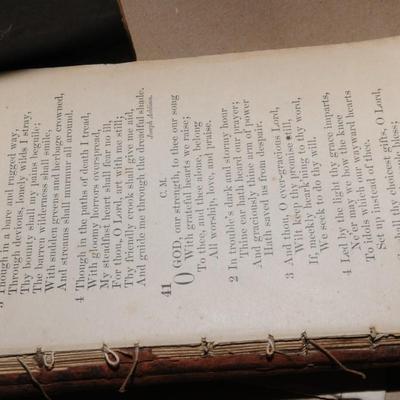 3 Though in a bare and rugged way,
Through devious, lonely wilds I stray,
Thy bounty shall my pains beguile;
The barren wilderness shall smile,
With sudden greens and herbage crowned,
And streams shall murmur all around.
4 Though in the paths of death I tread,
With gloomy horrors overspread,
My steadfast heart shall fear no ill,
For thou, O Lord, art with me still;
Thy friendly crook shall give me aid,
And guide me through the dreadful shade.
Joseph Addison.
41 C. M.
O GOD, our strength, to thee our song
With grateful hearts we raise;
To thee, and thee alone, belong
All worship, love, and praise.
2 In trouble's dark and stormy hour
Thine ear hath heard our prayer;
And graciously thine arm of power
Hath saved us from despair.
3 And thou, O ever-gracious Lord,
Wilt keep thy promise still,
If, meekly hearkening to thy word,
We seek to do thy will.
4 Led by the light thy grace imparts,
Ne'er may we bow the knee
To idols which our wayward hearts
Set up instead of thee.
shall thy choicest gifts, O Lord,
bless;